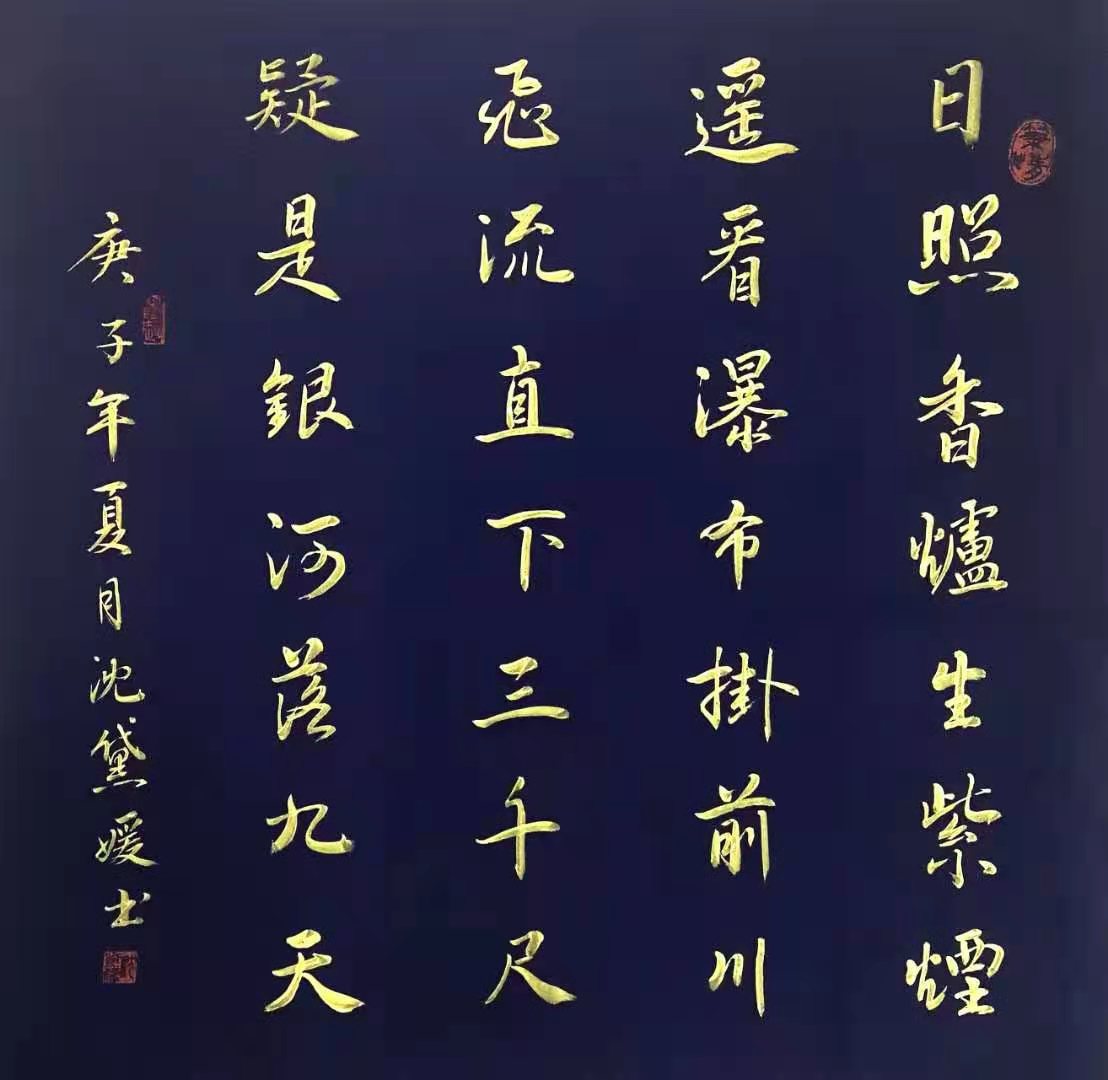 日照香爐生紫煙
遥看瀑布掛前川
飛流直下三千尺
疑是銀河落九天
庚子年夏月沈黛媛书